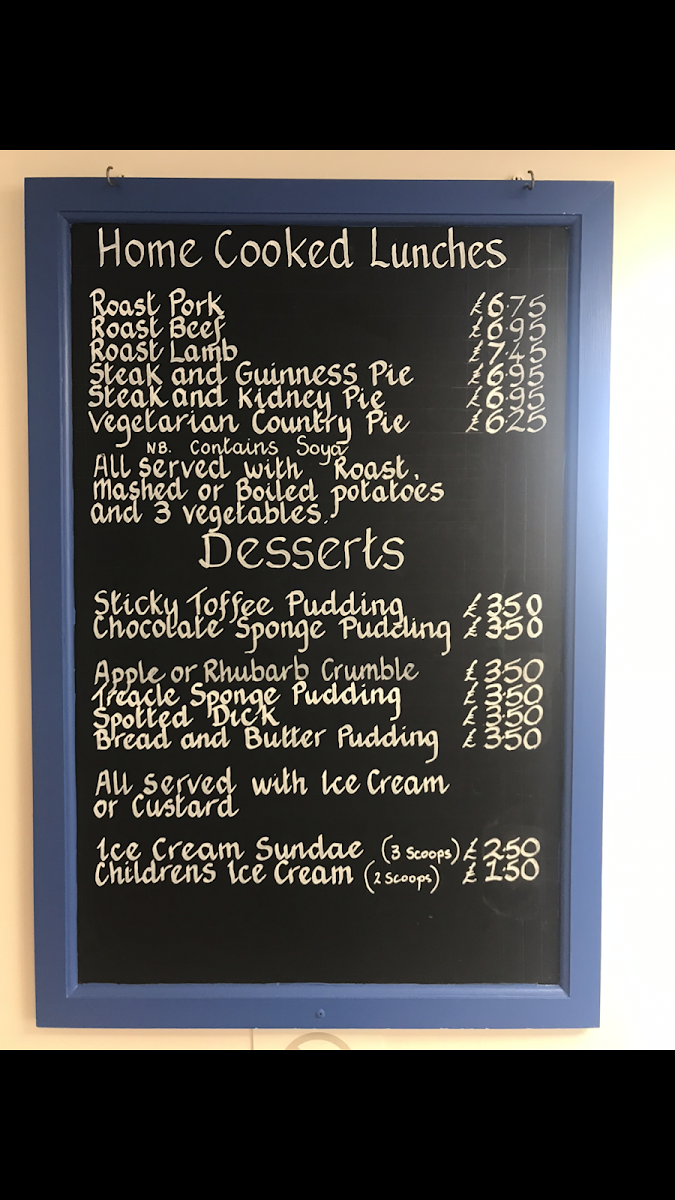 Home Cooked Lunches
Roast Pork £6.75
Roast Beef £6.95
Roast Lamb £7.45
Steak and Guinness Pie £6.95
Steak and Kidney Pie £6.95
Vegetarian Country Pie £6.25
NB. Contains Soya
All served with Roast,
Mashed or Boiled potatoes
and 3 vegetables.
Desserts
Sticky Toffee Pudding £3.50
Chocolate Sponge Pudding £3.50
Apple or Rhubarb Crumble £3.50
Treacle Sponge Pudding £3.50
Spotted Dick £3.50
Bread and Butter Pudding £3.50
All served with Ice Cream
or Custard
Ice Cream Sundae (3 Scoops) £2.50
Childrens Ice Cream (2 Scoops) £1.50